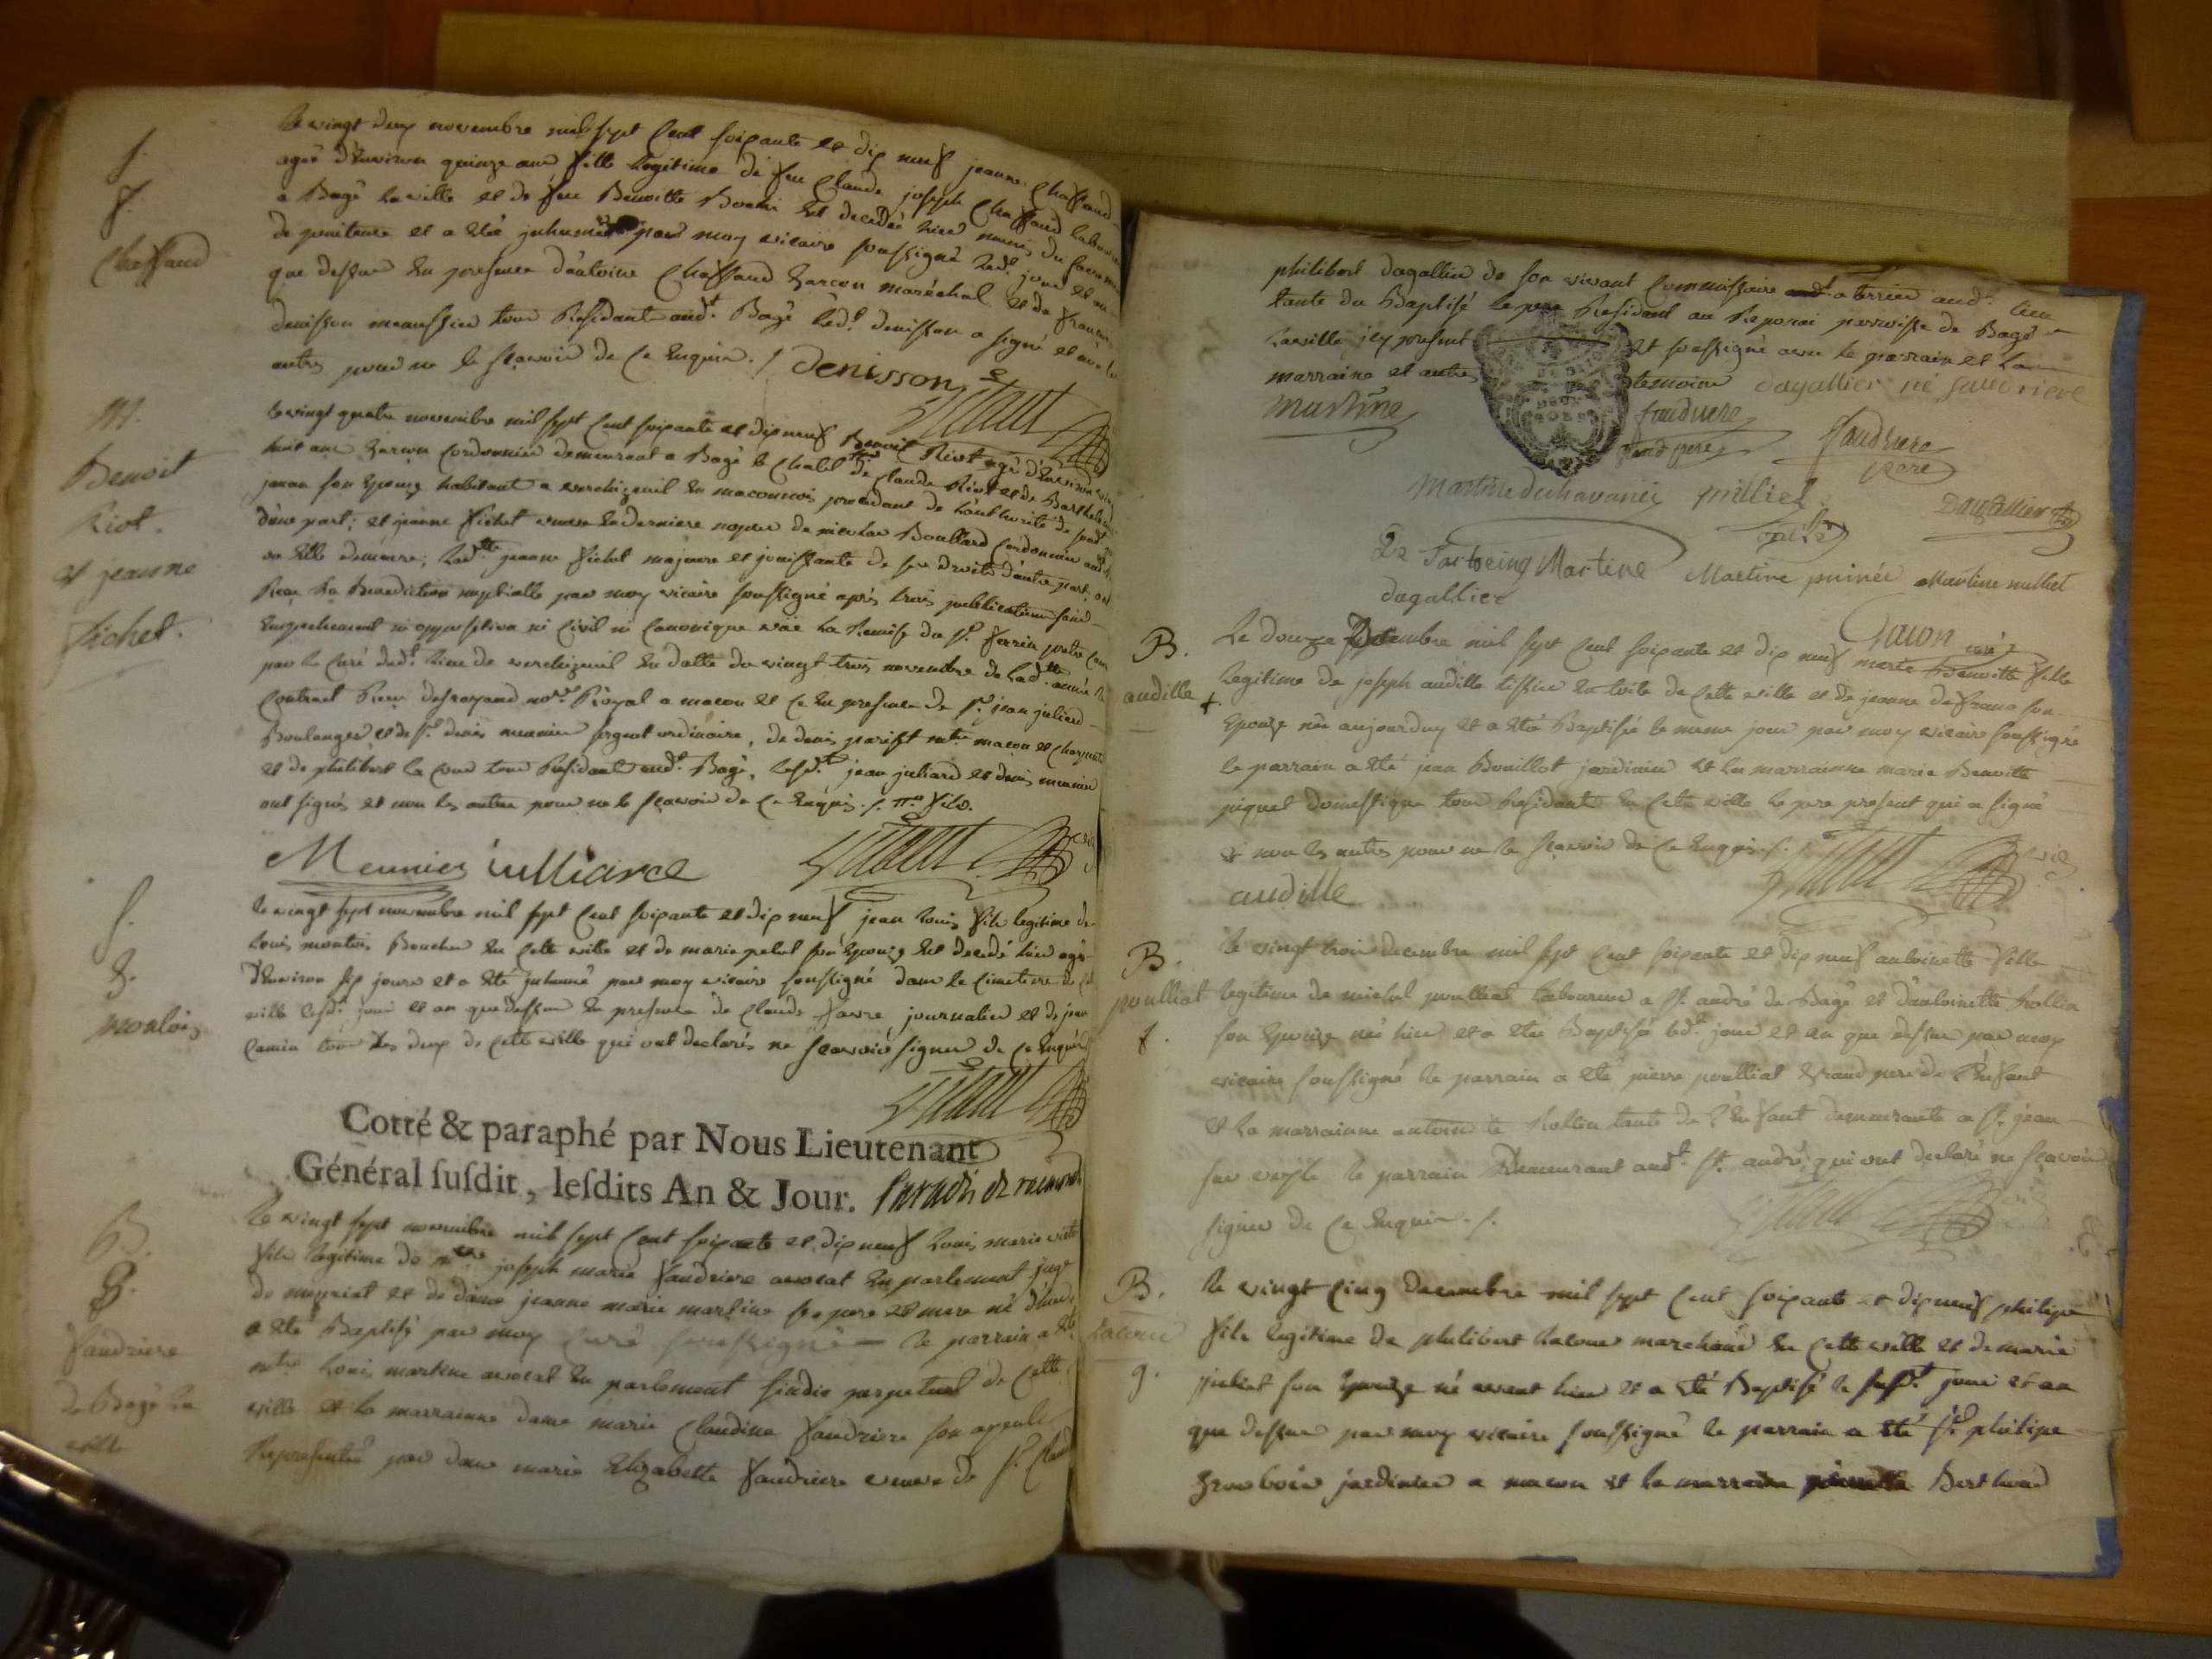 f.
f.
Chaffaud
le vingt deux novembre mil sept Cent soixante et dix neuf jeanne Chaffaud
agée d'Environ quinze ans fille legitime de feu Claude joseph Chaffaud laboureur
a Bagé la ville et de feu Benoitte est decedée hier munie du sacrement
de penitence et a été inhumée par moy vicaire soussigné led. jour et an
que dessus En presence d'antoine Chaffaud Garcon maréchal et de francois
denisson meunier tous Residants aud. Bagé led. denisson a signé et non les
autres pour ne le scavoir de ce Enquis. / denisson
M.
Benoit
Riot.
et jeanne
fichet.
le vingt quatre novembre mil sept Cent soixante et dix neuf Benoit Riot agé d'Environ vingt
huit ans Garcon Cordonnier demeurant a Bagé le Chatel de Claude Riot et de
son Epouse habitants a verchizeuil En maconnois procedant de l'authorité de
d'une part; et jeanne fichet veuve En derniere nopces de nicolas Boullard Cordonnier aud.
la ville demeure; lad. jeanne fichet majeure et jouissante de ses droits d'autre part, ont
Recu La Benediction nuptialle par moy vicaire soussigné aprés trois publications sans
Empechement ni opposition ni Civil ni Canonique vüe La Remise du Sr. pretre
par le Curé dud. lieu de verchizeuil En datte du vingt trois novembre de lad. année le
Contract Recu no.re Royal a macon et ce En presence de Sr. jean juliard
Boulanger et de Sr. denis meunier sergent ordinaire, de denis parist m.tre macon et
et de philibert la cour tous Residants aud. Bagé, lesd. jean juliard et denis meunier
ont signés et non les autres pour ne le scavoir de ce Enquis. /. fils.
Meunier julliard
f.
g.
montois
le vingt sept novembre mil sept Cent soixante et dix neuf jean louis fils legitime de
louis montois Boucher En cette ville et de marie son Epouse Est decedé hier agé
d'Environ six jours et a été inhumé par moy vicaire soussigné dans le cimetiere de
ville lesd. jour et an que dessus En presence de Claude favre journalier et de jean
Camin tous Les deux de cette ville qui ont declarés ne scavoir signer de ce Enquis
Cotté & paraphé par Nous Lieutenant
Général susdit, lesdits An & Jour.
B.
g.
faudriere
de Bagé la
ville
le vingt sept novembre mil sept Cent soixante et dix neuf louis marie
fils legitime de m.tre joseph marie faudriere avocat En parlement juge
de et de dame jeanne marie martine ses pere et mere né d'hier
a été Baptisé par moy curé soussigné — le parrain a été
m.tre louis martine avocat En parlement sindic perpetuel de Cette
ville et la marrainne dame marie Claudine faudriere son ayeule
Representée par dame marie Elizabette faudriere veuve de Sr. Claude
philibert dagallier de son vivant Commissaire a terrier aud. lieu
tante du Baptisé le pere Residant au Reponai parroisse de Bagé
la ville icy present et soussigné avec le parrain et La
marraine et autres temoins dagallier né faudriere
martine faudriere faudriere
pere
martine dechavanes pilliet
Dagallier
De Martine Martine puinée Martine
dagallier
Gacon curé
B.
audille
+
Le douze decembre mil sept Cent soixante et dix neuf marie Benoitte fille
Legitime de joseph audille tissier En toile de cette ville et de jeanne defranc son
Epouse née aujourduy et a été Baptisée le meme jour par moy vicaire soussigné
le parrain a été jean Bouillot jardinier et la marrainne marie Benoitte
piquet domestique tous Residants En cette ville le pere present qui a signé
et non les autres pour ne le scavoir de ce Enquis. /.
audille
B.
poulliat
f.
le vingt trois decembre mil sept Cent soixante et dix neuf antoinette fille
legitime de michel poulliat laboureur a St. andré de Bagé et d'antoinette Rollin
son Epouse née hier et a été Baptisée led. jour et an que dessus par moy
vicaire soussigné le parrain a été pierre poulliat Grand pere de l'Enfant
et La marrainne antoinette Rollin tante de l'Enfant demeurante a St. jean
sur veyle le parrain demeurant aud. St. andré, qui ont declaré ne scavoir
signer de ce Enquis. /.
B.
lacour
g.
le vingt cinq Decembre mil sept Cent soixante et dix neuf philipe
fils legitime de philibert lacour marchand En cette ville et de marie
son Epouse né avant hier et a été Baptisé le susd. jour et an
que dessus par moy vicaire soussigné le parrain a été Sr. philipe
Grosbois jardinier a macon et la marraine pierrette Berthoud